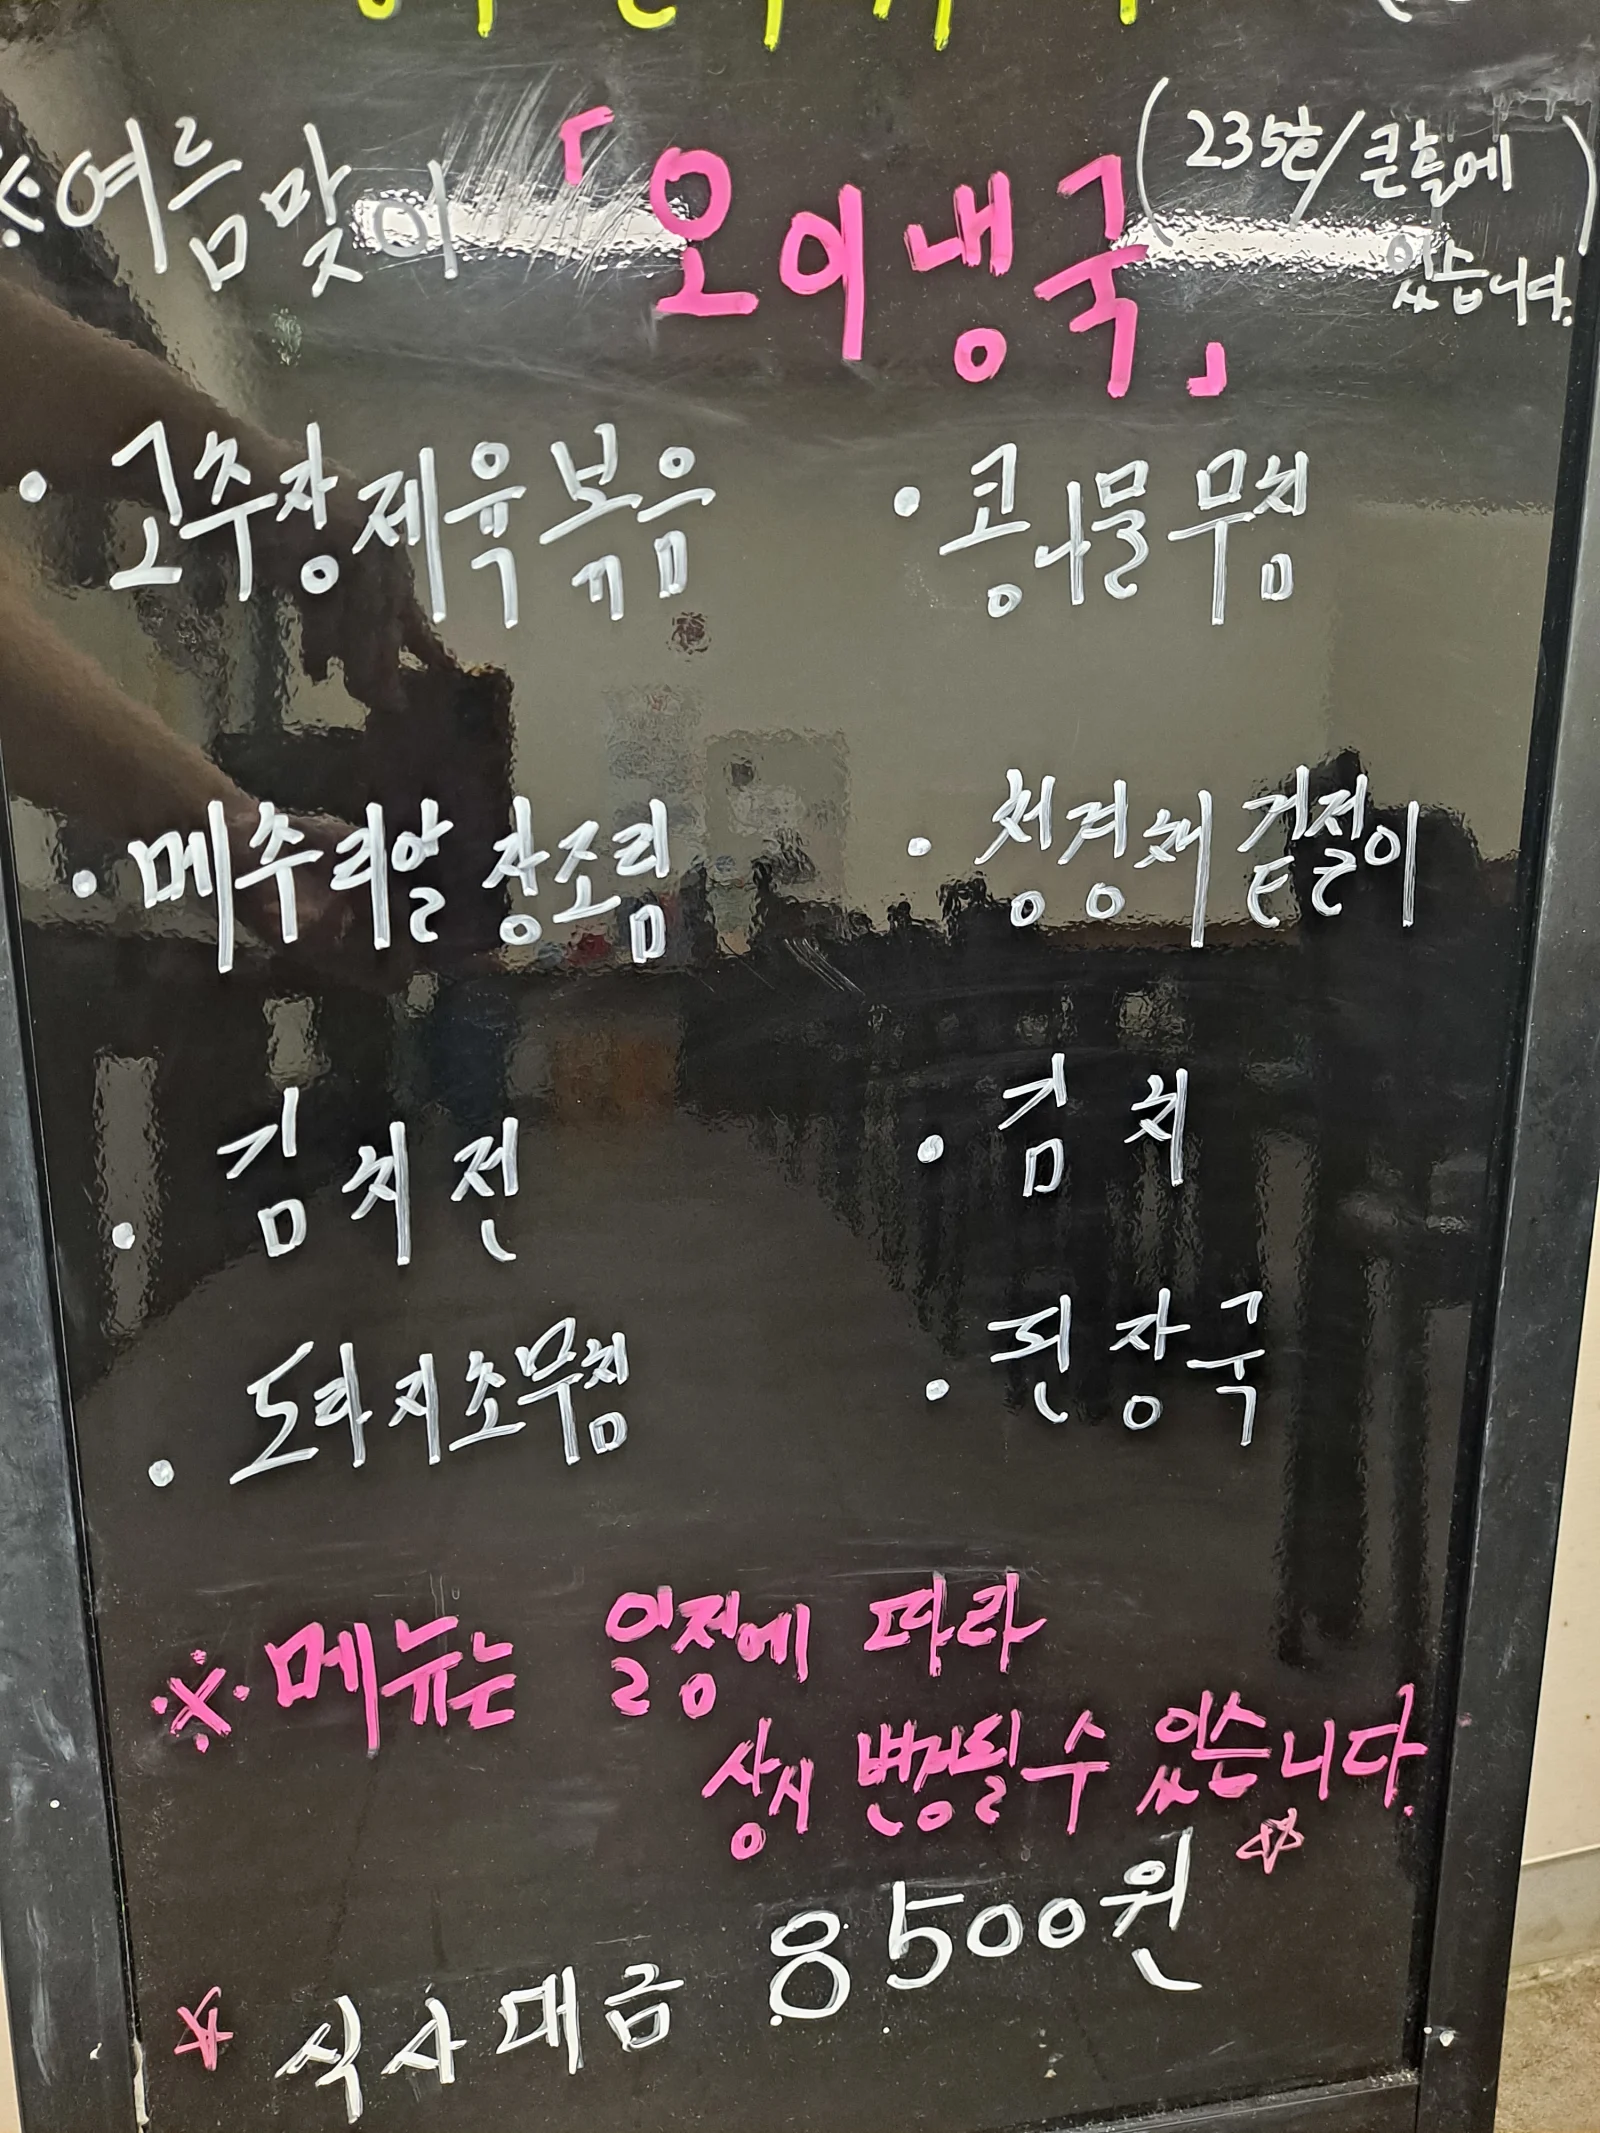 ※여름맞이 「오이냉국」 (235호/큰홀에
있습니다.)
• 고추장제육볶음 • 콩나물무침
• 메추리알 장조림 • 청경채 겉절이
• 김치전 • 김치
• 도라지초무침 • 된장국
※메뉴는 일정에 따라
상시 변경될 수 있습니다.
☆ 식사대금 8500원 ☆